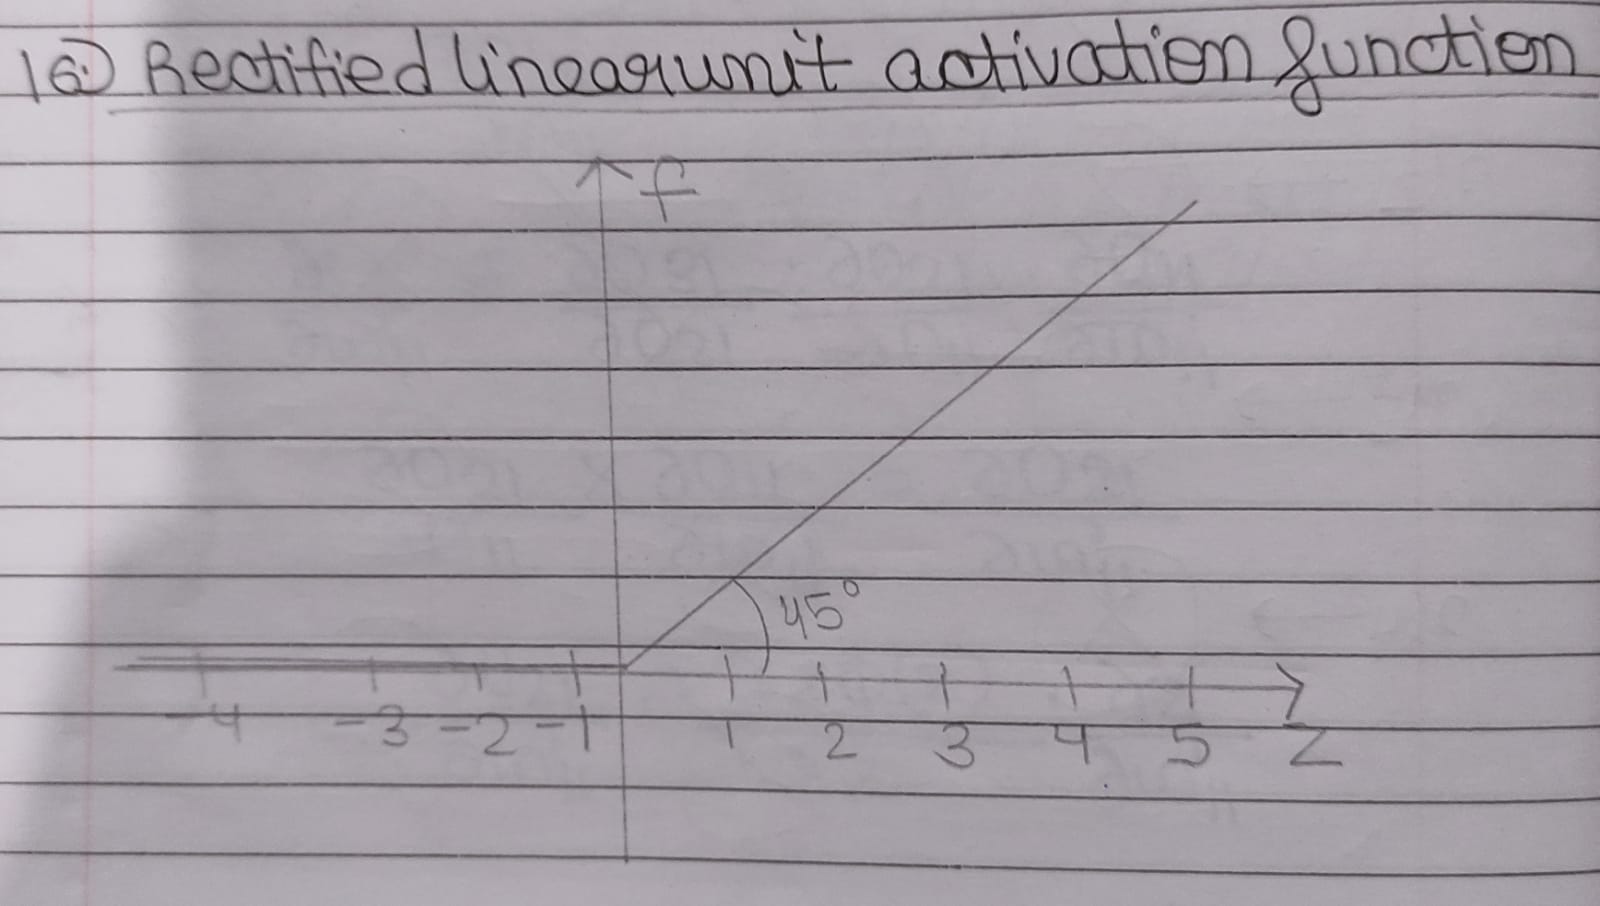 16.) Rectified linear unit activation function
f
45°
-4 -3 -2 -1 1 2 3 4 5 Z